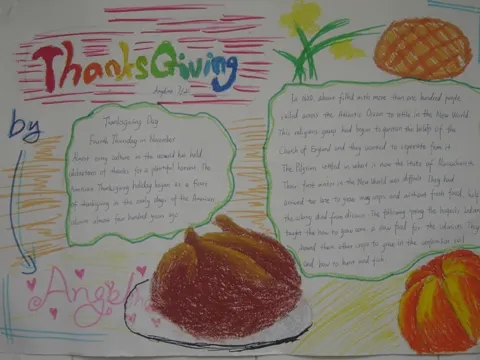 ThanksGiving
by
Angelina
Thanksgiving Day
Fourth Thursday in November
Almost every culture in the world has held
celebrations of thanks for a plentiful harvest. The
American Thanksgiving holiday began as a feast
of thanksgiving in the early days of the American
almost four hundred years ago
In 1620 a boat filled with more than one hundred people
sailed across the Atlantic Ocean to settle in the New World
This religious group had begun to question the beliefs of the
Church of England and they wanted to separate from it.
The Pilgrims settled in what is now the state of Massachusetts
Their first winter in the New World was difficult They had
arrived too late to grow many crops and without fresh food, half
the colony died from disease. The following spring the Iroquois Indians
taught the how to grow corn a new food for the colonists They
showed them other crops to grow in the unfamiliar soil
and how to hunt and fish.